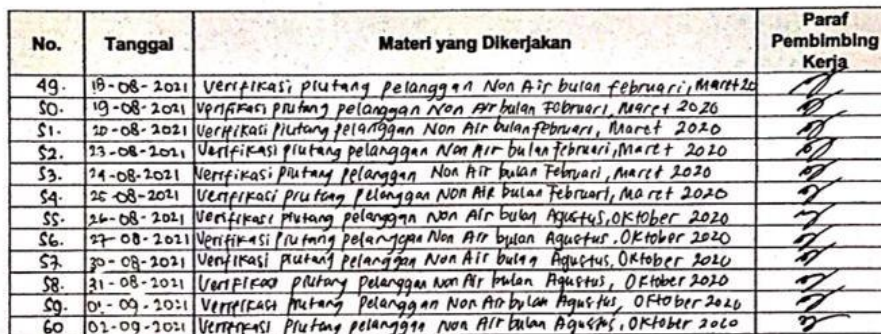 No. Tanggal Materi yang Dikerjakan Paraf Pembimbing Kerja
49. 18-08-2021 Verifikasi piutang pelanggan Non Air bulan februari, Maret 20
50. 19-08-2021 Verifikasi piutang pelanggan Non Air bulan Februari, Maret 2020
51. 20-08-2021 Verifikasi piutang pelanggan Non Air bulan februari, Maret 2020
52. 23-08-2021 Verifikasi piutang pelanggan Non Air bulan februari, Maret 2020
53. 24-08-2021 Verifikasi piutang pelanggan Non Air bulan Februari, Maret 2020
54. 25-08-2021 Verifikasi piutang pelanggan Non Air bulan februari, Maret 2020
55. 26-08-2021 Verifikasi piutang pelanggan Non Air bulan Agustus, Oktober 2020
56. 27-08-2021 Verifikasi piutang pelanggan Non Air bulan Agustus. Oktober 2020
57. 30-08-2021 Verifikasi piutang pelanggan Non Air bulan Agustus, Oktober 2020
58. 31-08-2021 Verifikasi piutang pelanggan Non Air bulan Agustus, Oktober 2020
59. 01-09-2021 Verifikasi piutang pelanggan Non Air bulan Agustus, Oktober 2020
60 02-09-2021 Verifikasi piutang pelanggan Non Air bulan Agustus, Oktober 2020